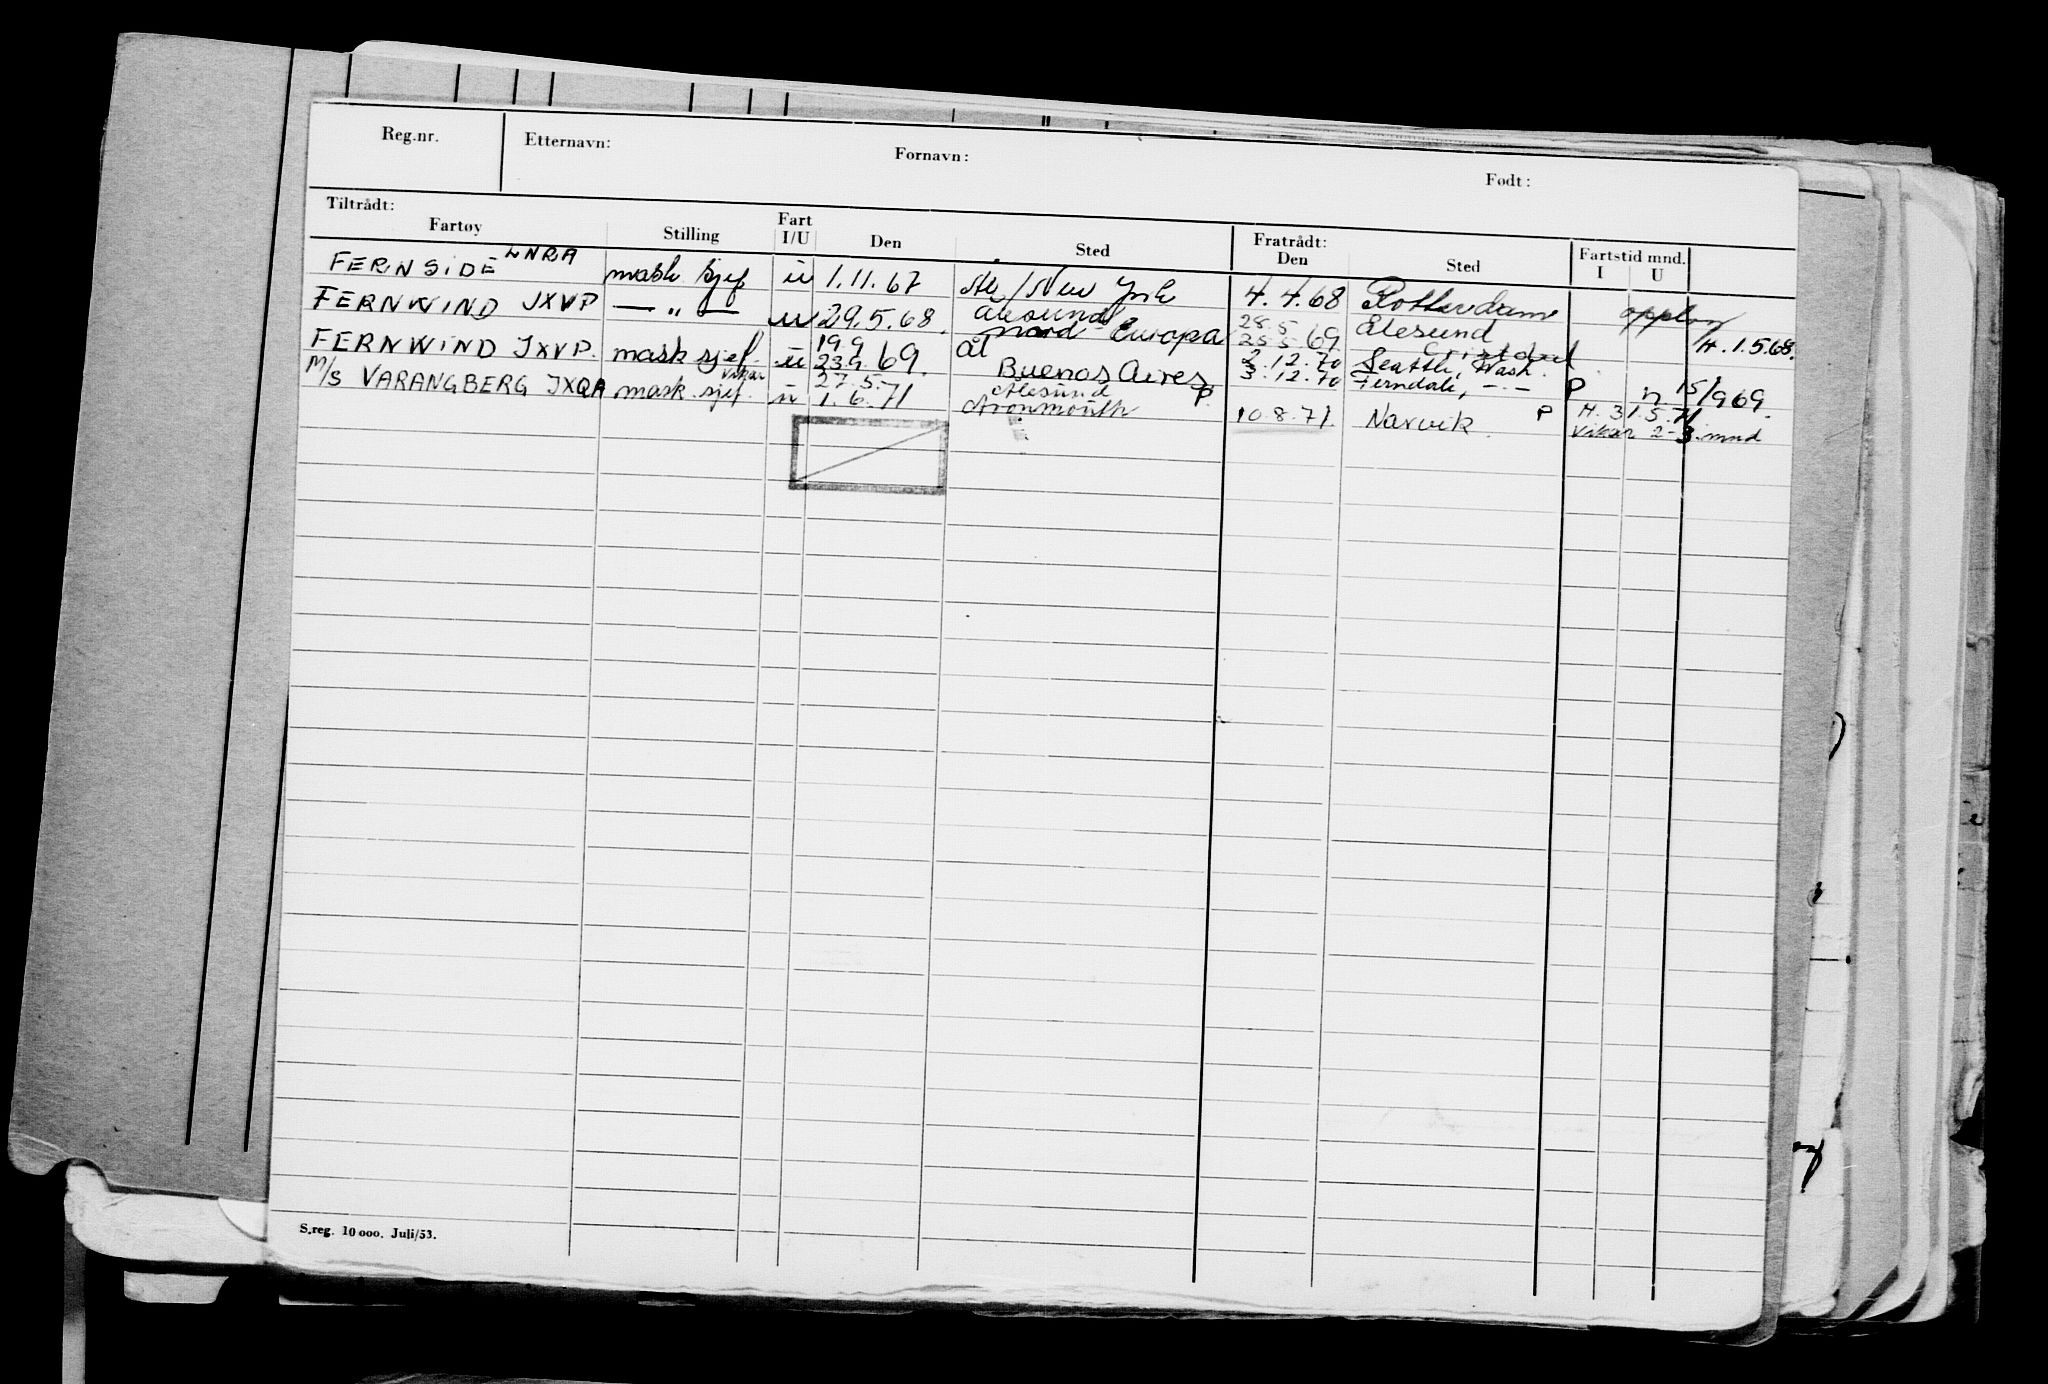 Reg.nr. Etternavn: Fornavn: Født:
Tiltrådt: Fratrådt: Fartstid mnd.
Fartøy Stilling Fart I/U Den Sted Den Sted I U
FERNSIDE LNRA mask sjef u 1.11.67 Ål/New York 4.4.68 Rotterdam
FERNWIND JXVP — " — u 29.5.68. Ålesund Nord Europa 28.5 25.5.69. Ålesund H. 1.5.68.
FERNWIND JXVP. mask sjef. u 19.9 23.9.69. Ål Buenos Aires P 2.12.70 3.12.70 Seattle, Wash. Ferndale, —.— P n 15/9 69.
M/S VARANGBERG JXQA mask. sjef. vikar u 27.5. 1.6.71 Ålesund Avonmouth 10.8.71. Narvik P H. 31.5.71 Vikar 2-3 mnd
S.reg. 10 000. Juli/53.